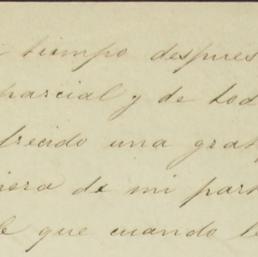 tiempo despues
parcial y de tod
frecido una grat
iera de mi part
que cuando le